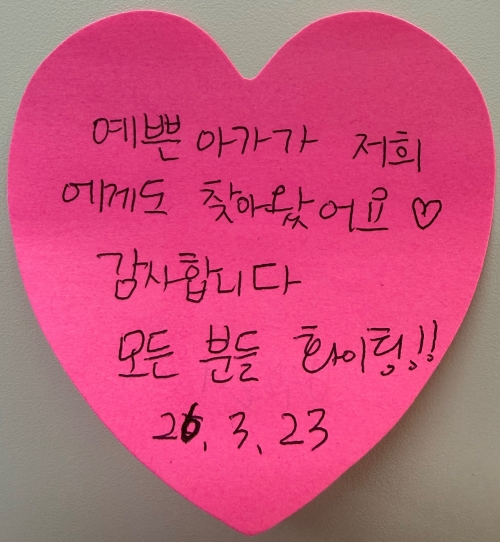 예쁜 아가가 저희
에게도 찾아왔어요 ♡
감사합니다
모든 분들 화이팅!!
26. 3. 23